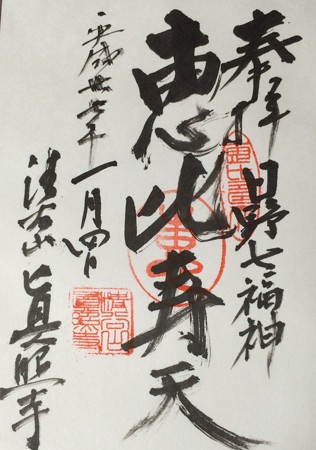 奉拝 日野七福神
恵比寿天
平成廿七年 一月四日
清谷山 真照寺